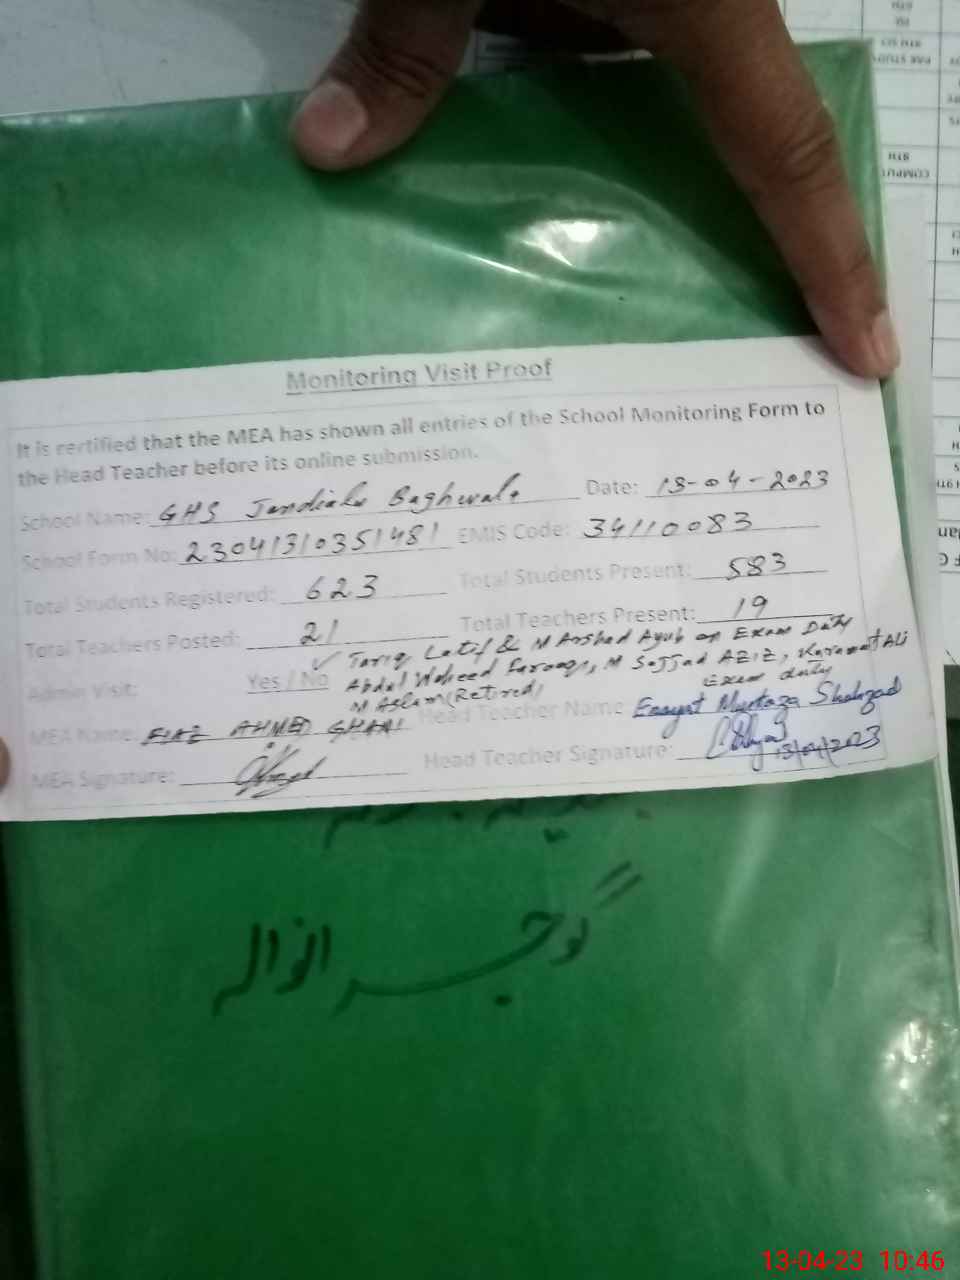 Monitoring Visit Proof
It is certified that the MEA has shown all entries of the School Monitoring Form to
the Head Teacher before its online submission.
School Name: GHS Jandiala Baghwala Date: 13-04-2023
School Form No: 23041310351481 EMIS Code: 34110083
Total Students Registered: 623 Total Students Present: 583
Total Teachers Posted: 21 Total Teachers Present: 19
✓ Tariq Latif & M Arshad Ayub on Exam Duty
Admin Visit: Yes / No Abdul Waheed Farooq, M Sajjad AZIZ, Karamat Ali
M Aslam (Retired) Exam duty
MEA Name: FIAZ AHMED GHANI Head Teacher Name: Enayat Murtaza Shahzad
MEA Signature: Head Teacher Signature: 13/04/2023
گوجرانوالہ
13-04-23 10:46